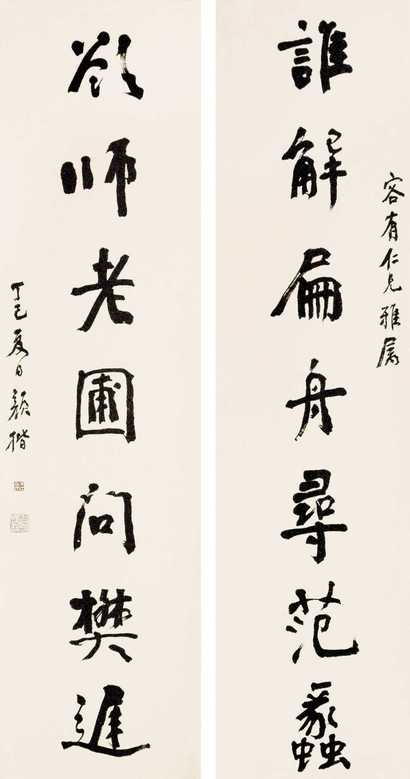 容有仁兄雅属
誰解扁舟尋范蠡
欲師老圃問樊遲
丁巳夏日顏楷